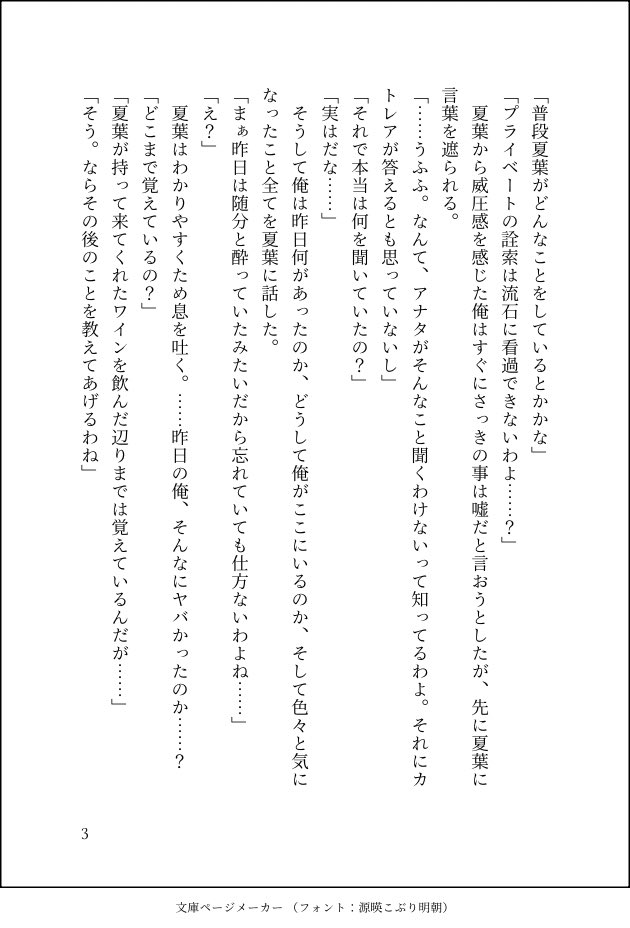 「普段夏葉がどんなことをしているとかかな」
「プライベートの詮索は流石に看過できないわよ……？」
　夏葉から威圧感を感じた俺はすぐにさっきの事は嘘だと言おうとしたが、先に夏葉に
言葉を遮られる。
「……うふふ。なんて、アナタがそんなこと聞くわけないって知ってるわよ。それにカ
トレアが答えるとも思っていないし」
「それで本当は何を聞いていたの？」
「実はだな……」
　そうして俺は昨日何があったのか、どうして俺がここにいるのか、そして色々と気に
なったこと全てを夏葉に話した。
「まぁ昨日は随分と酔っていたみたいだから忘れていても仕方ないわよね……」
「え？」
　夏葉はわかりやすくため息を吐く。……昨日の俺、そんなにヤバかったのか……？
「どこまで覚えているの？」
「夏葉が持って来てくれたワインを飲んだ辺りまでは覚えているんだが……」
「そう。ならその後のことを教えてあげるわね」
3
文庫ページメーカー（フォント：源暎こぶり明朝）